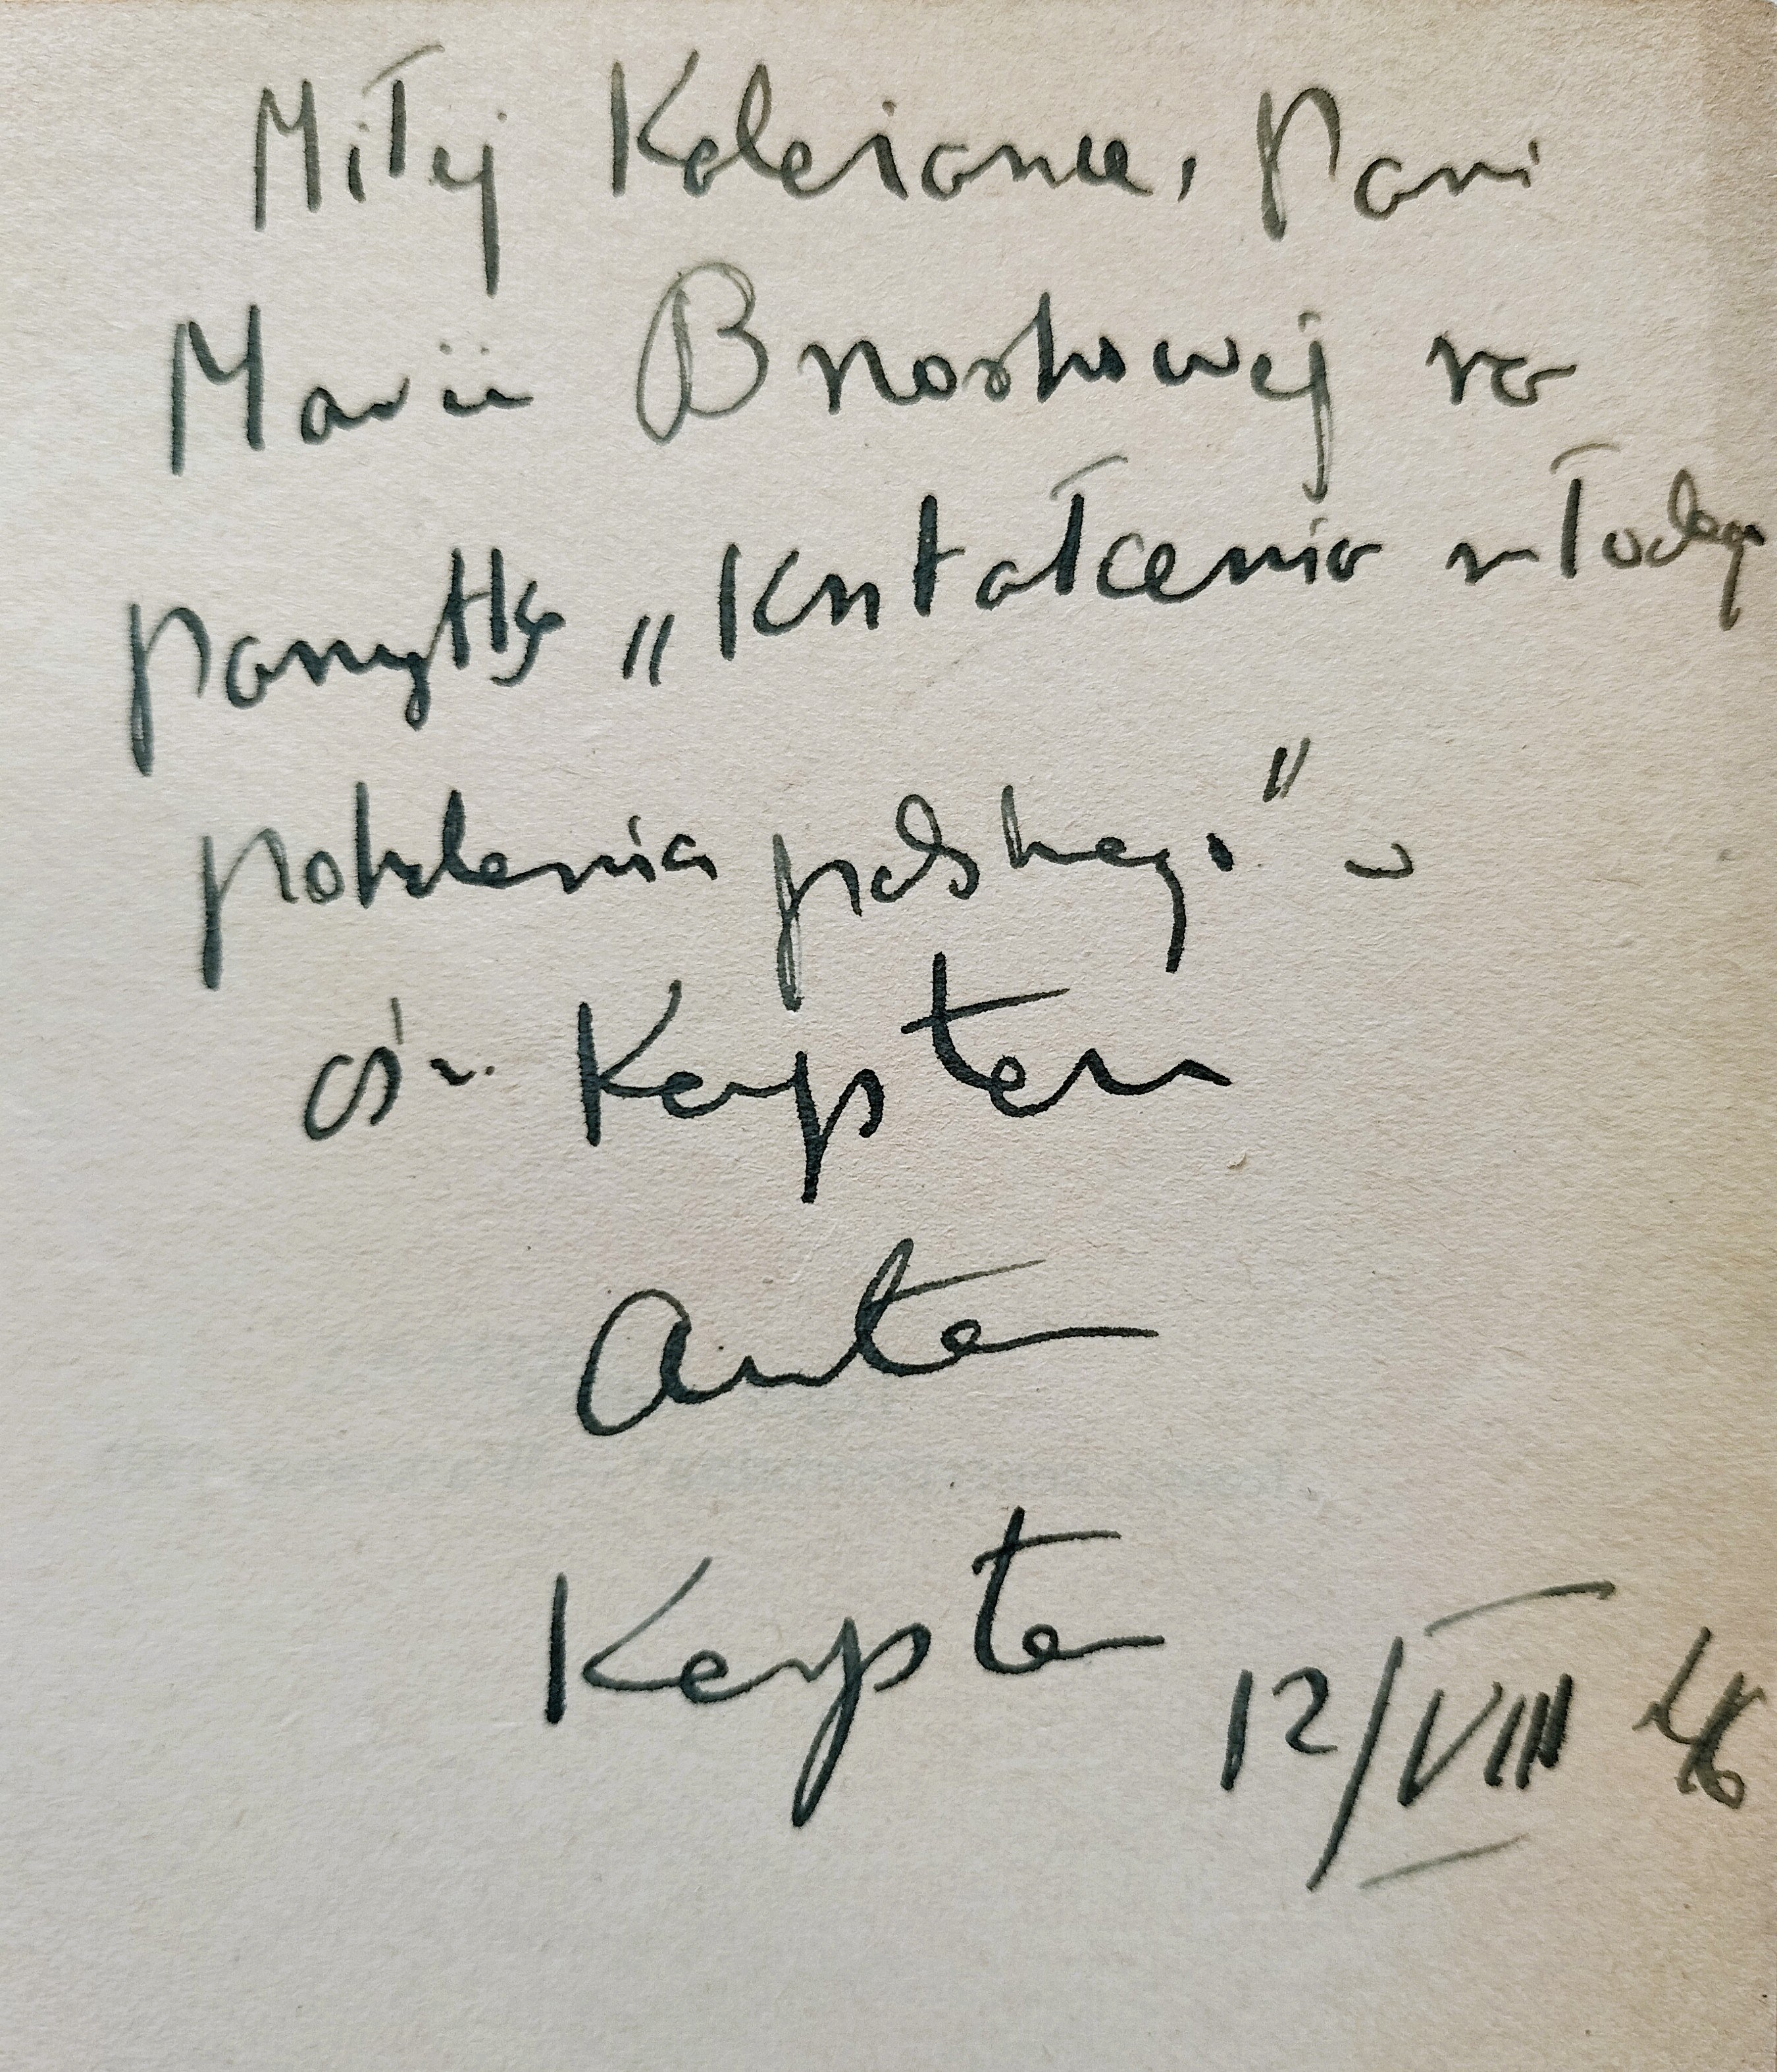 Miłej Koleżance, Pani
Marii Brzoskowej na
pamiątkę „Kształcenia młodego
pokolenia polskiego" w
Kempten
Autor
Kempten 12/VIII 46